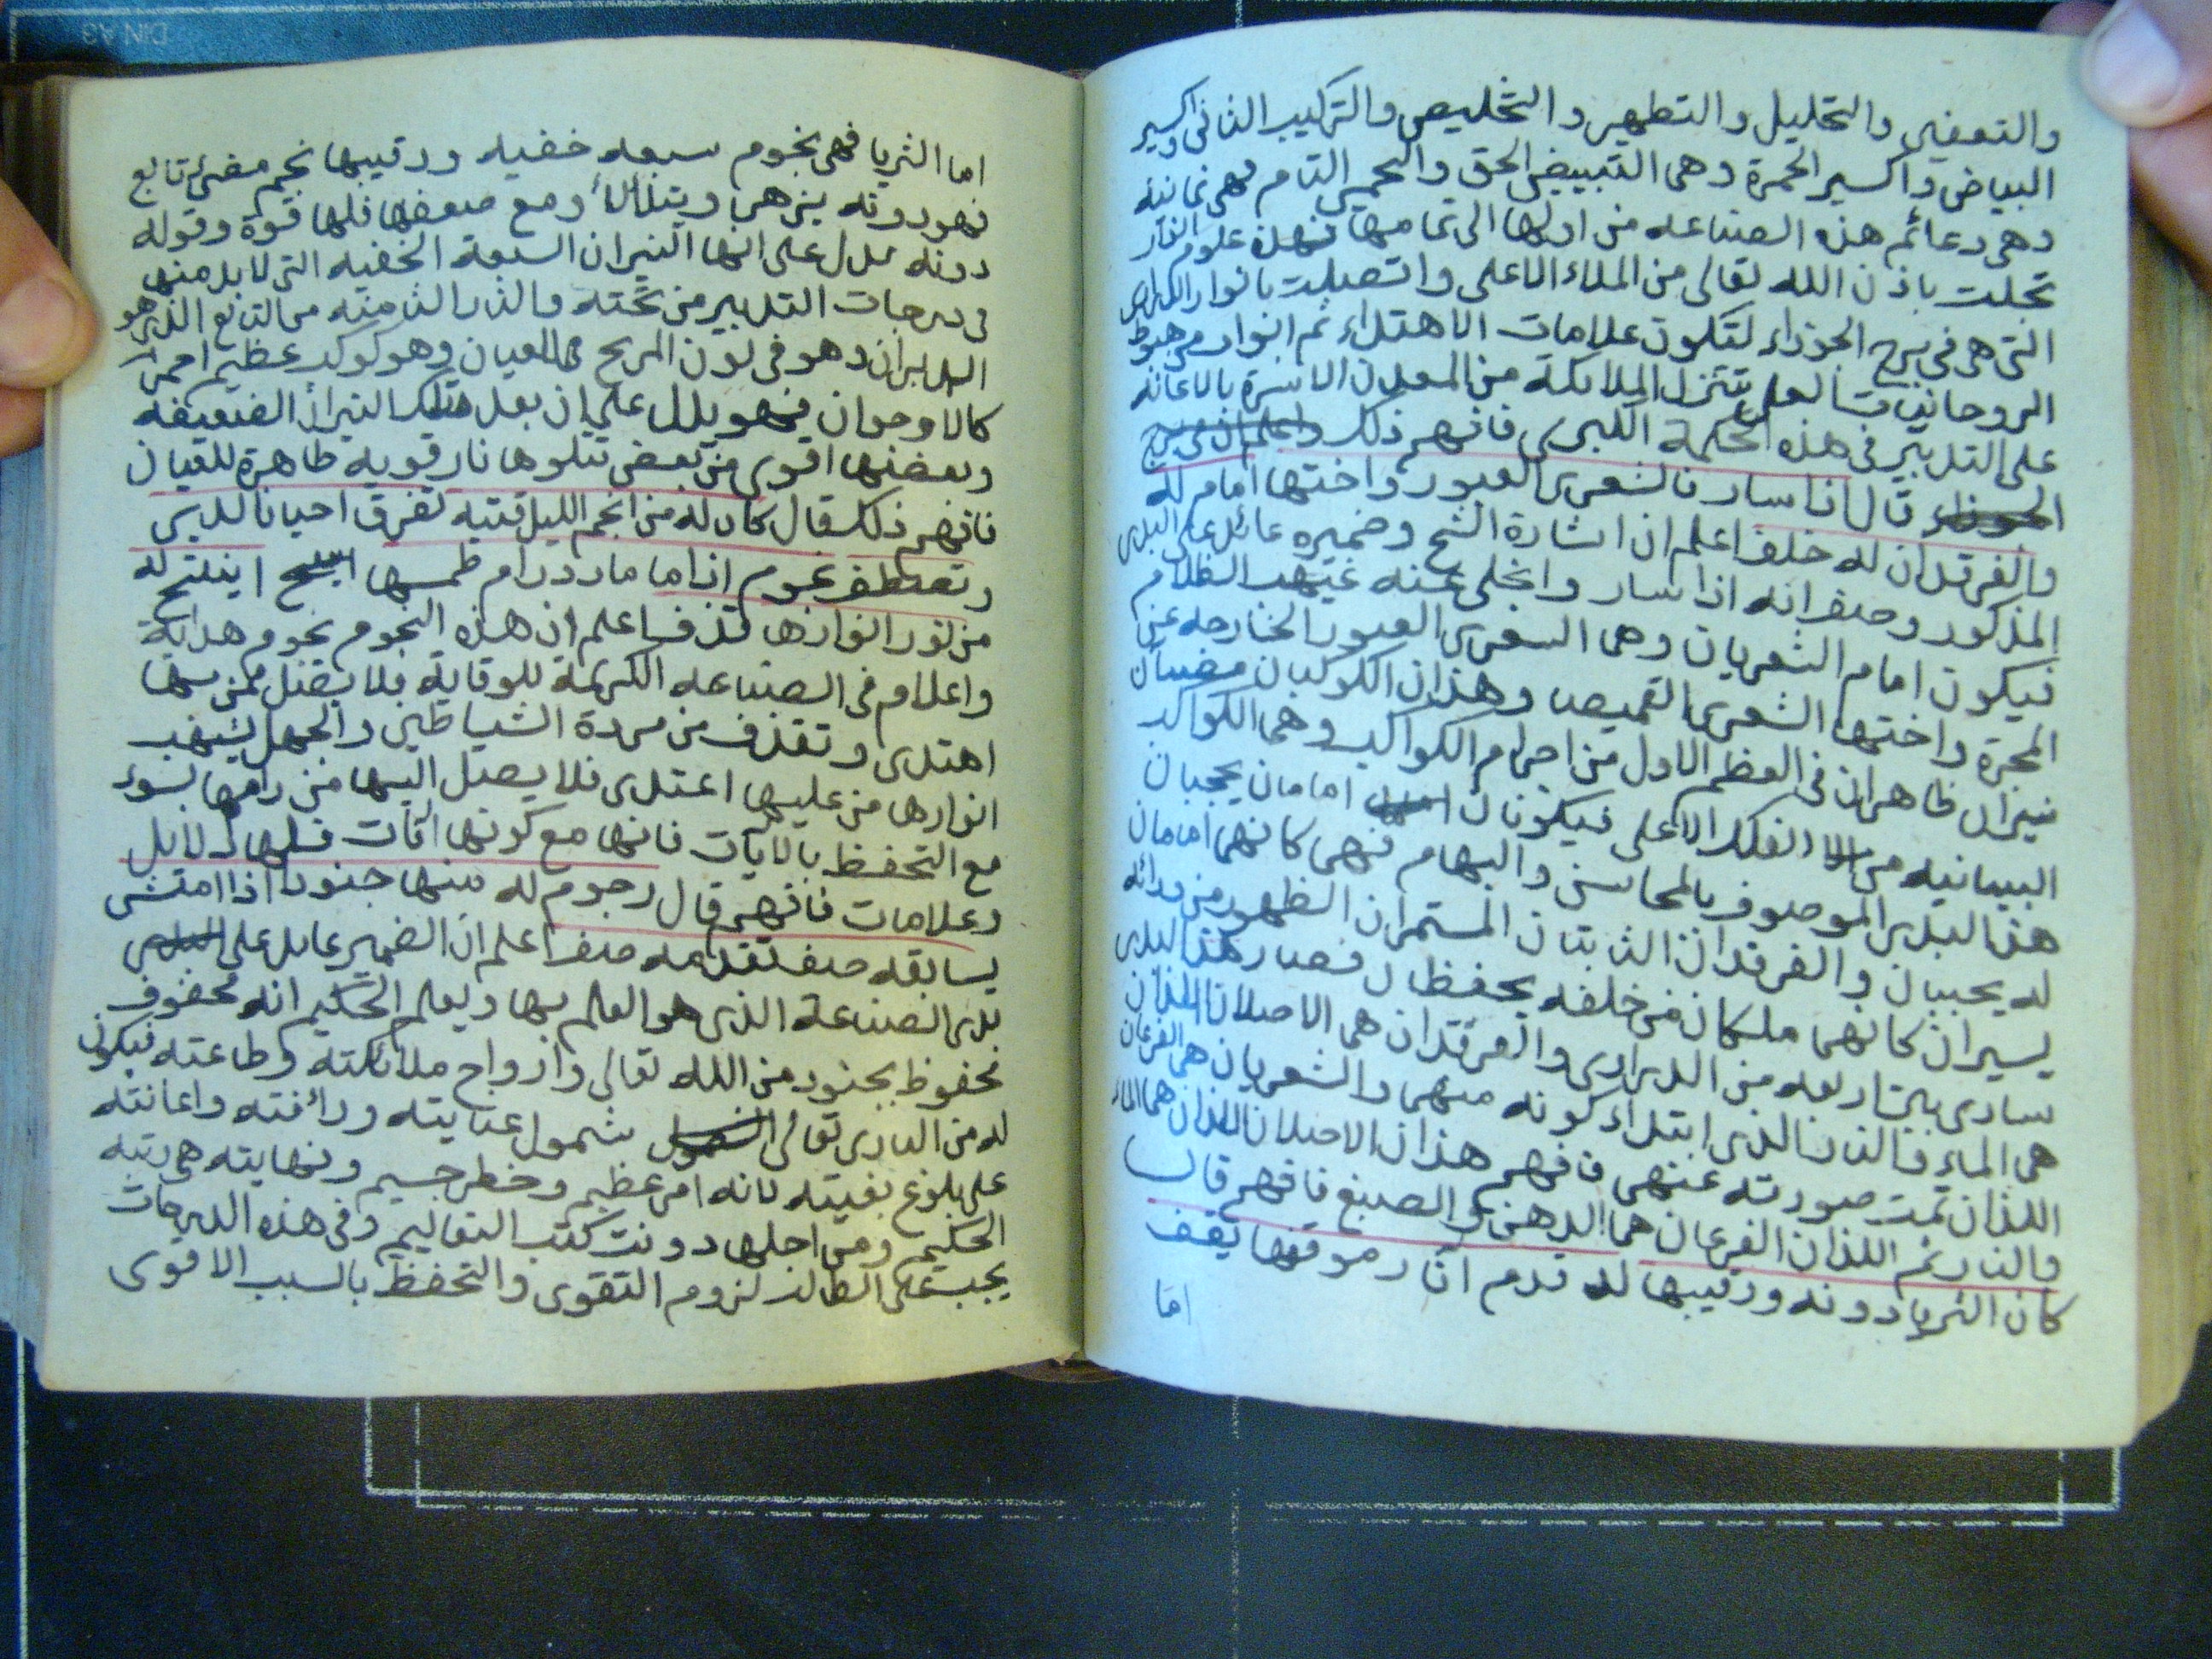 والتعفين والتحليل والتطهير والتخليص والتركيب الثاني واكسير
البياض واكسير الحمرة وهى التبييض الحق والتحمير التام فهى ثمانية
وهى دعائم هذه الصناعه من اولها الى تمامها فهذه علوم انوار
تجلت باذن الله تعالى من الملاء الاعلى واتصلت بانوار الدرارى
التى هى فى برج الجوزاء لتكون علامات الاهتداء ثم انوار هبوط
الروحانيات العلى تتنزل الملائكة من المعدن الاسرة بالاعانه
على التدبير فى هذه الحكمة الكبرى فافهم ذلك واعلم ان فى برج
الجوزاء قال اناسار فالشعرى العبور واختها امام له
والفرقدان له خلف اعلم ان اشارة الشيخ وضميره عائد على البدر
المذكور وصف انه اذا سار وانجلى عنه غيهب الظلام
فيكون امام الشعريان وهما الشعرى العبور الخارجه عن
المجرة واختها الشعرى القميصا وهذان الكوكبان مضيئان
نيران ظاهران فى العظم الاول من اجرام الكواكب وهما الكواكب
البيبانيه من الفلك الاعلى فيكونان امامان يحجبان
هذا البدر الموصوف بالمحاسن والبهام فهى كانهما امامان
له يحجبان والفرقدان الثابتان المستمران الظهور من ورائه
يسيران كانهما ملكان من خلفه يحفظان فصار هذا البدر
سارى بين اربعه من الدرارى والفرقدان هما الاصلان اللذان
هى الماء والنار الذى ابتداء كونه منهما والشعريان هما الفرعان
اللذان تمت صورته عنهما فافهم هذان الاصلان اللذان هما الماء
والنار ثم اللذان الفرعان هما الدهن والصبغ فافهم قال
كان الثريا دونه ورقيبها له قدم اثار موقفها تقف
اما
اما الثريا فهى نجوم سبعه خفيه ورقيبها نجم مضىء تابع
فهو دونه يزهى ويتلألأ ومع ضعفها فلها قوة وقوله
دونه يدل على انها النيران السبعة الخفيه التى لابد منها
فى درجات التدبير من تحته والنار الثامنه من التابع الذى هو
الدبران وهو فى لون المريخ فى العيان وهو كوكب عظيم احمر
كالاوجوان فهو يدل على ان بعد تلك النيران الضعيفه
وبعضها اقوى من بعض تتلوها نار قويه ظاهرة للعيان
فافهم ذلك قال كان له من انجم الليل فتيه تفرق احيانا لديى
وتعطف نجوم اذا ما مارد رام طمسها اينتج له
من نور انوارها قذف اعلم ان هذه النجوم نجوم هداية
واعلام فى الصناعه الكريمة للوقاية فلا يضل ممن بها
اهتدى وتقذف من مردة الشياطين والجهل بشهب
انوارها من عليها اعتدى فلا يصل اليها من رامها بسوء
مع التحفظ بالايات فانها مع كونها آيات فلها دلايل
وعلامات فافهم قال رجوم له منها جنود اذا امتشى
يسابقه صف تقدمه صف اعلم ان الضمير عايد على
بدر الصناعة الذى هو العلم بها ويعلم الحكيم انه محفوف
محفوظ بجنود من الله تعالى وازواج ملائكته وطاعته فيكون
له من البارى تعالى شمول عنايته ورأفته واعانته
على بلوغ بغيته لانه امر عظيم وخطر جسيم ونهايته هى رتبه
الحكيم ومن اجلها دونت كتب التعاليم وفى هذه الدرجات
يجب على الطالب لزوم التقوى والتحفظ بالسبب الاقوى